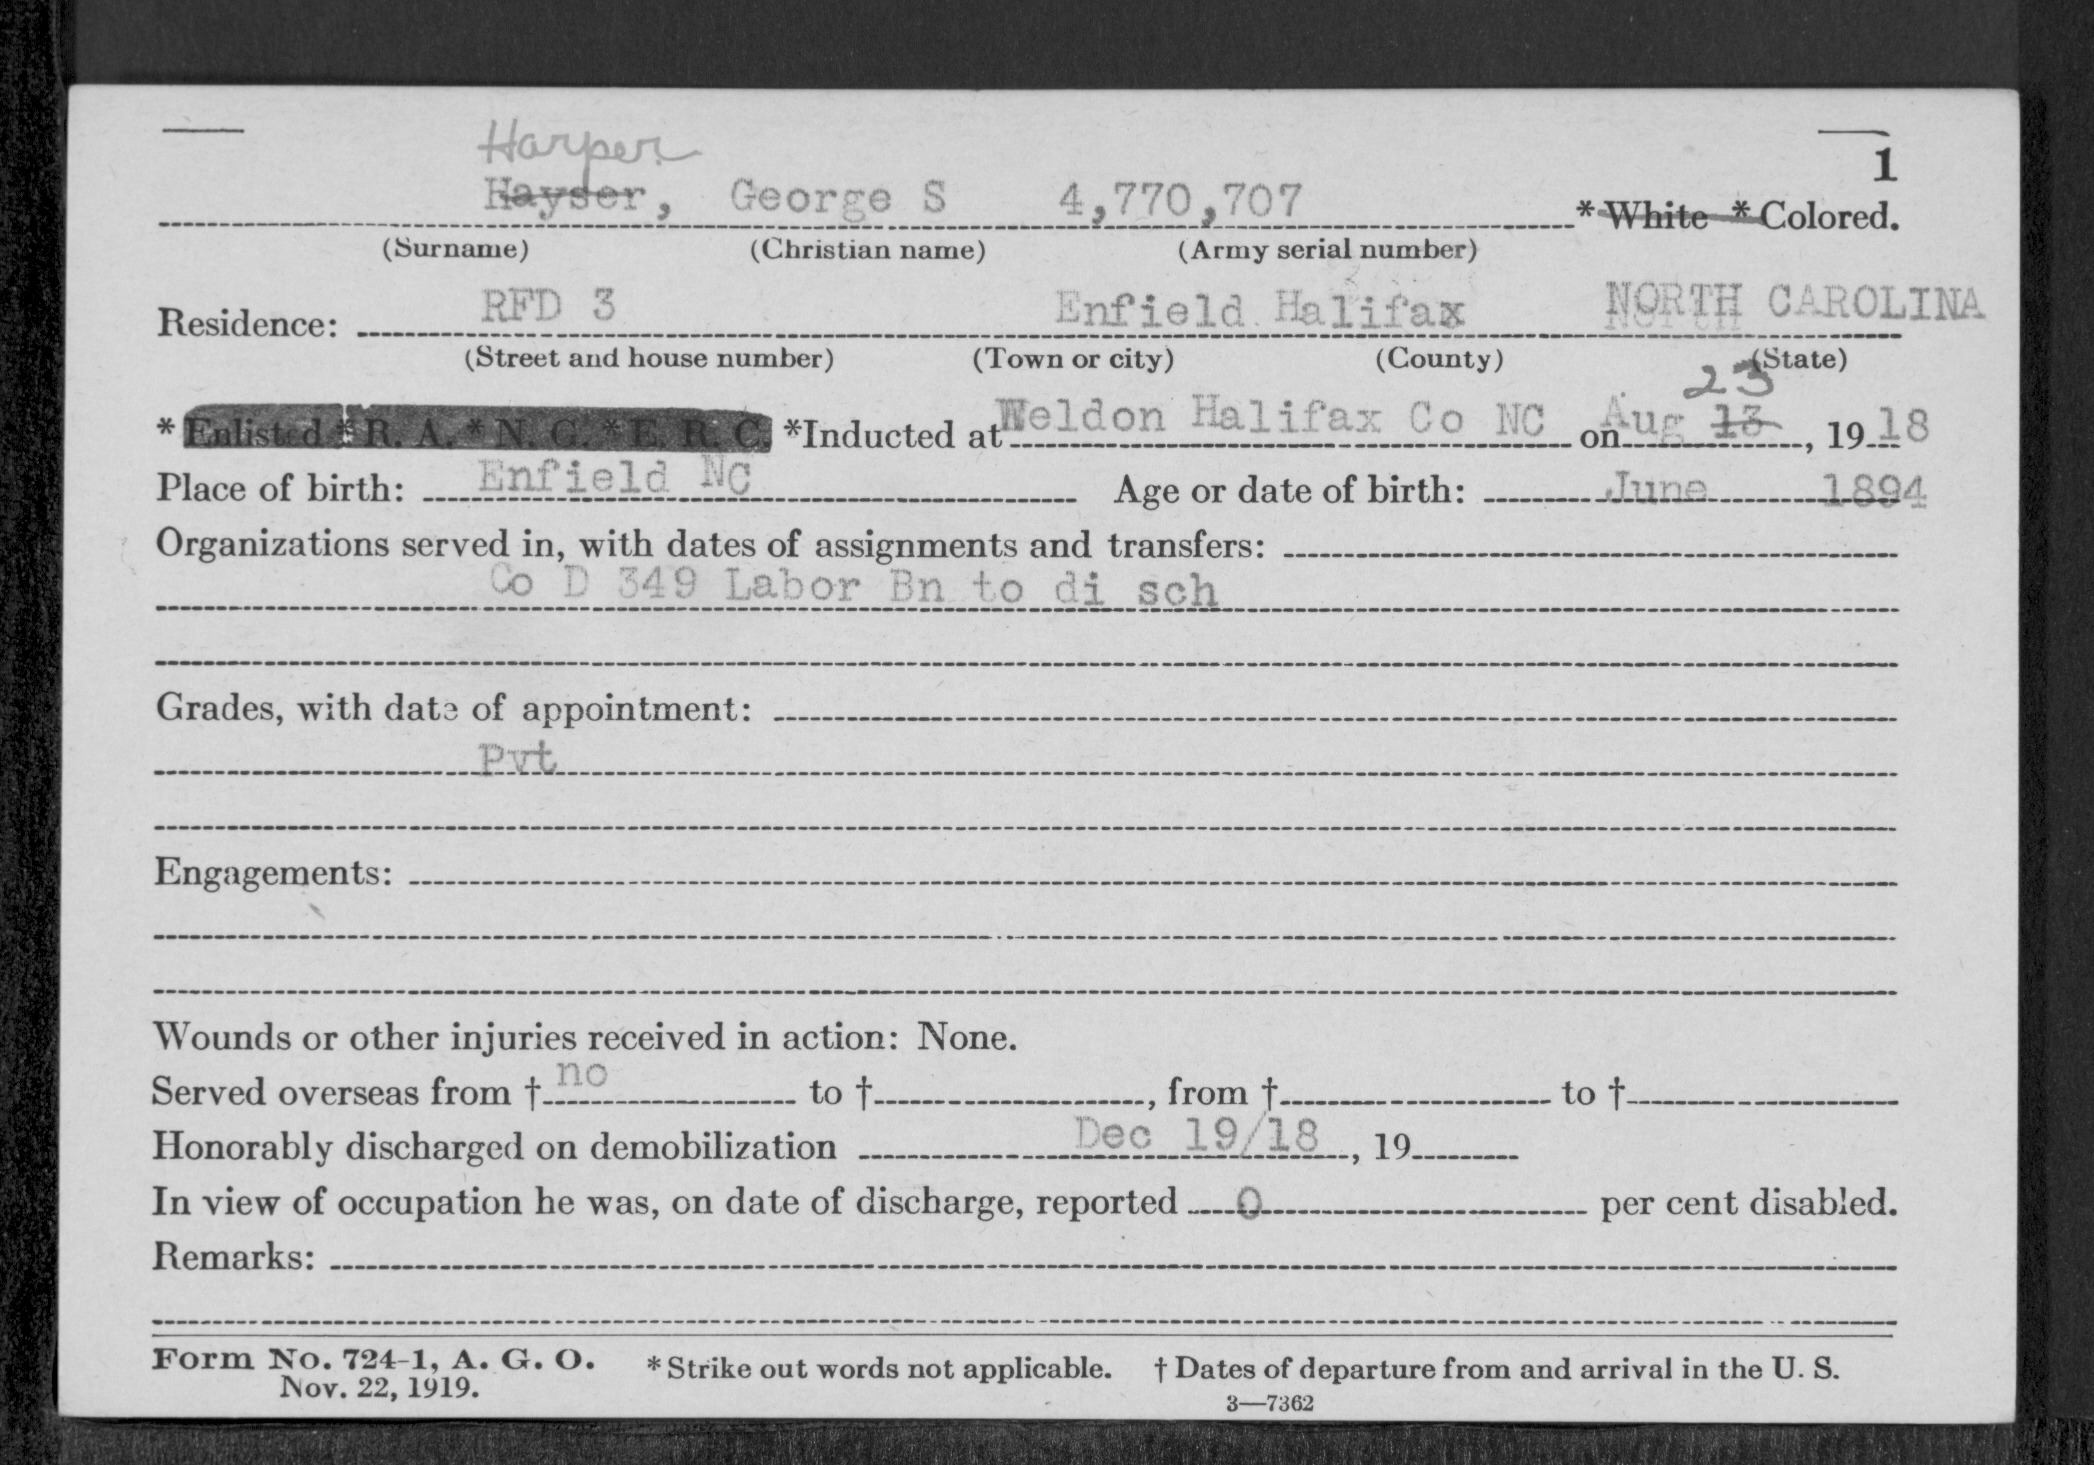 Harper
1
Hayser, George S 4,770,707 * White * Colored.
(Surname) (Christian name) (Army serial number)
Residence: RFD 3 Enfield Halifax NORTH CAROLINA
(Street and house number) (Town or city) (County) (State)
23
* Enlisted * R. A. * N. G. * E. R. C. *Inducted at Weldon Halifax Co NC on Aug 13, 1918
Place of birth: Enfield NC Age or date of birth: June 1894
Organizations served in, with dates of assignments and transfers:
Co D 349 Labor Bn to di sch
Grades, with date of appointment:
Pvt
Engagements:
Wounds or other injuries received in action: None.
Served overseas from † no to †, from † to †
Honorably discharged on demobilization Dec 19/18, 19
In view of occupation he was, on date of discharge, reported 0 per cent disabled.
Remarks:
Form No. 724-1, A. G. O. * Strike out words not applicable. † Dates of departure from and arrival in the U. S.
Nov. 22, 1919.
3—7362